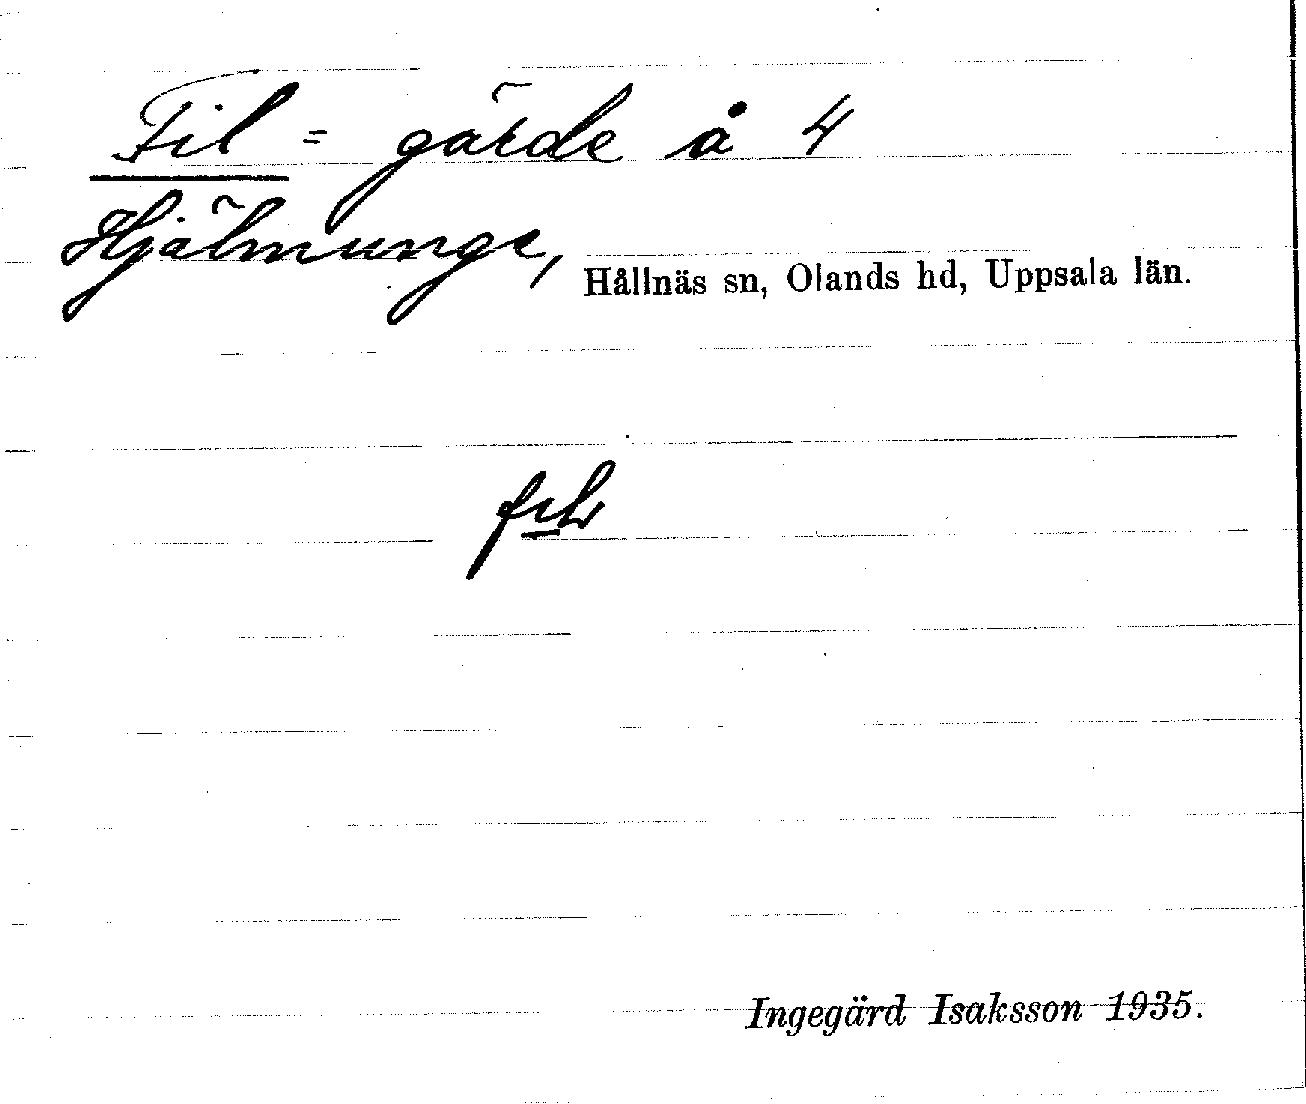 Fil = gärde å 4
Hjälmunge, Hållnäs sn, Olands hd, Uppsala län.
Ingegärd Isaksson 1935.